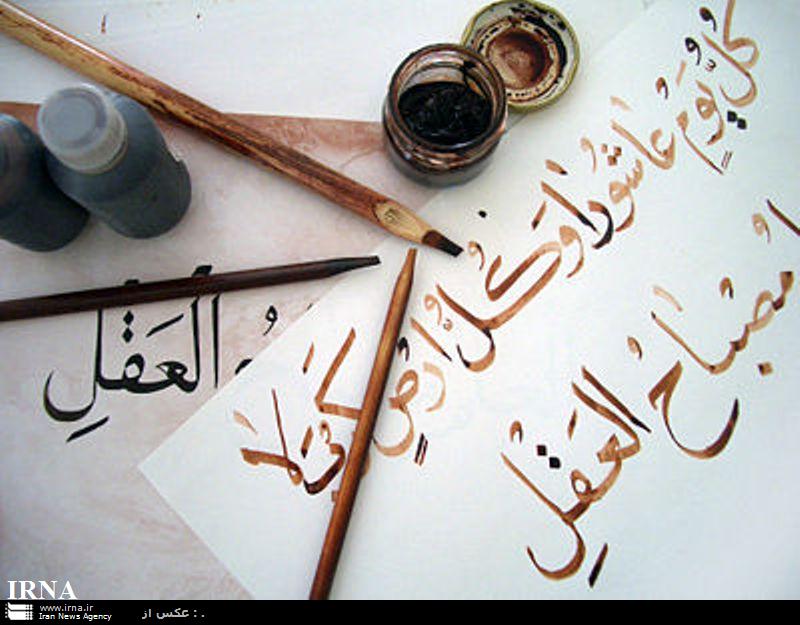 كُلُّ يَوْمٍ عاشُورٰا وَ كُلُّ اَرْضٍ كَرْبَلا
مِصْباحُ العَقْلِ
العَقْلِ
IRNA
www.irna.ir
Iran News Agency
عکس از : .